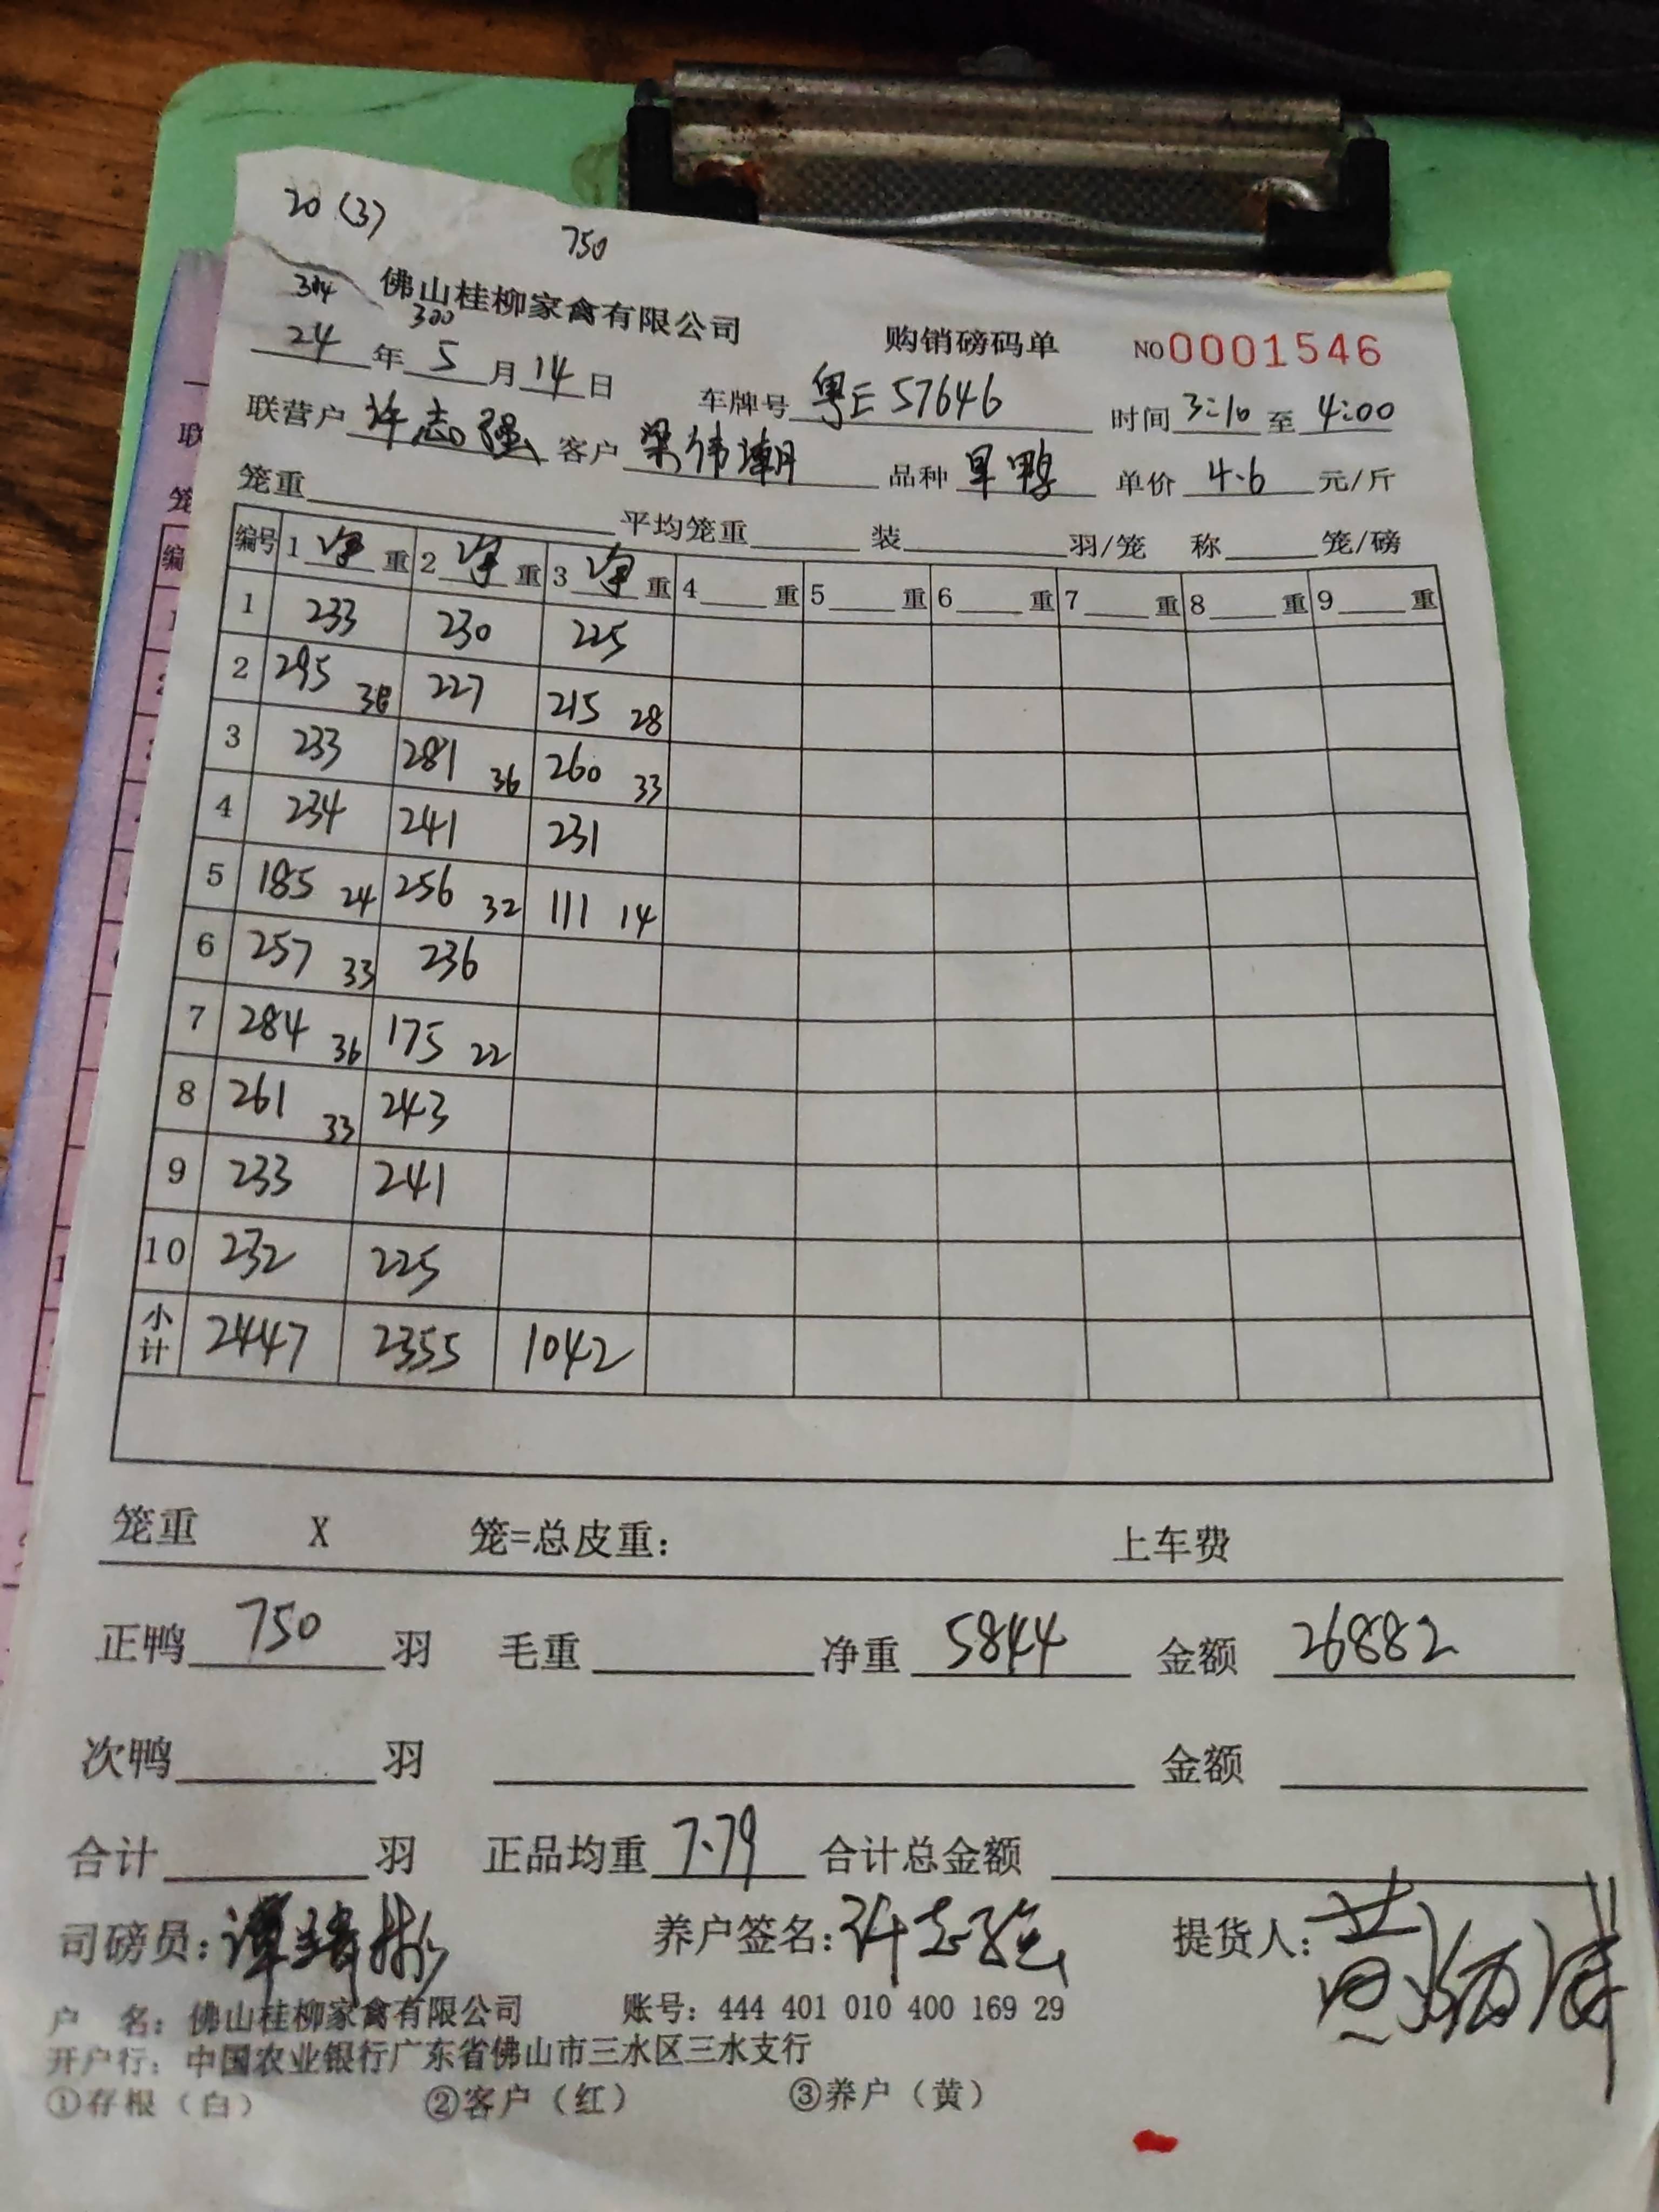 20 (3)
750
304
300
佛山桂柳家禽有限公司 购销磅码单 NO 0001546
24 年 5 月 14 日 车牌号 粤E 57646 时间 3:10 至 4:00
联营户 许志强 客户 梁伟潮 品种 旱鸭 单价 4.6 元/斤
笼重 平均笼重 装 羽/笼 称 笼/磅
编号 1 净 重 2 净 重 3 净 重 4 重 5 重 6 重 7 重 8 重 9 重
1 233 230 225
2 295 38 227 215 28
3 233 281 36 260 33
4 234 241 231
5 185 24 256 32 111 14
6 257 33 236
7 284 36 175 22
8 261 33 243
9 233 241
10 232 225
小计 2447 2355 1042
笼重 X 笼=总皮重: 上车费
正鸭 750 羽 毛重 净重 5844 金额 26882
次鸭 羽 金额
合计 羽 正品均重 7.79 合计总金额
司磅员: 养户签名: 许志强 提货人:
户 名: 佛山桂柳家禽有限公司 账号: 444 401 010 400 169 29
开户行: 中国农业银行广东省佛山市三水区三水支行
①存根（白） ②客户（红） ③养户（黄）